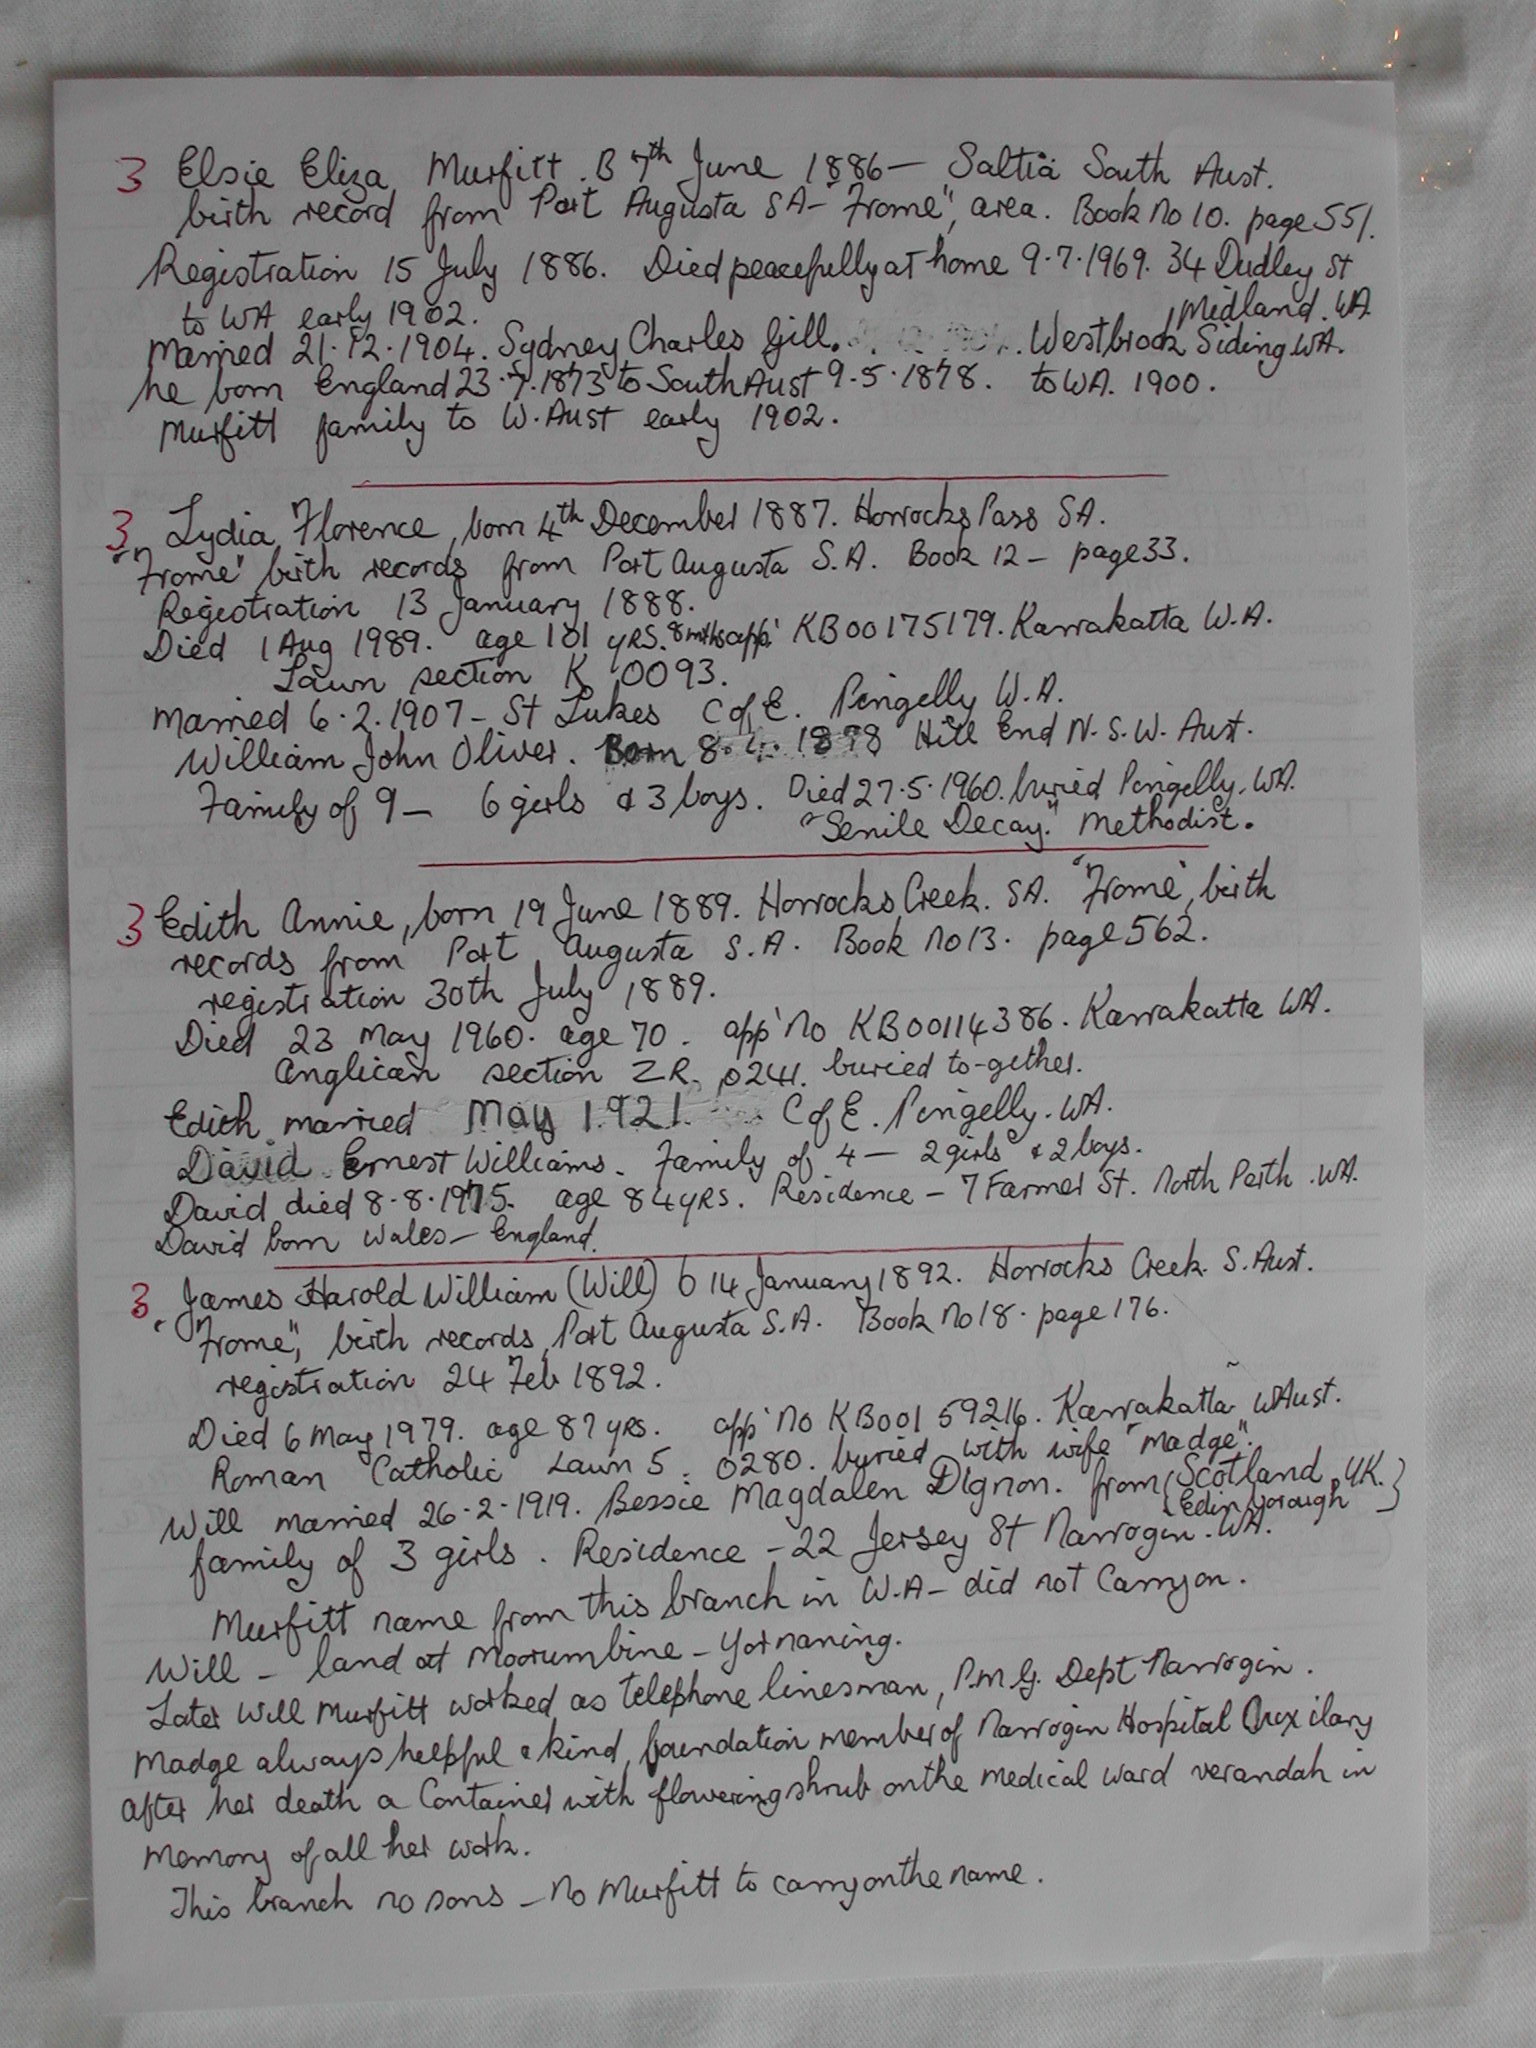 3 Elsie Eliza Murfitt. B 7th June 1886 – Saltia South Aust.
birth record from Port Augusta SA – "Frome", area. Book no 10. page 551.
Registration 15 July 1886. Died peacefully at home 9.7.1969. 34 Dudley St
Midland. WA
to WA early 1902.
Married 21.12.1904. Sydney Charles Gill. Westbrook Siding WA.
he born England 23.7.1873 to South Aust 9.5.1878. to WA. 1900.
Murfitt family to W. Aust early 1902.
3 Lydia Florence, born 4th December 1887. Horrocks Pass SA.
"Frome" birth records from Port Augusta S.A. Book 12 – page 33.
Registration 13 January 1888.
Died 1 Aug 1989. age 101 yrs. 8 mths app' KB00175179. Karrakatta W.A.
Lawn section K 0093.
Married 6.2.1907 – St Lukes C of E. Pingelly W.A.
William John Oliver. Born 8.4.1878 Hill End N.S.W. Aust.
Family of 9 – 6 girls & 3 boys. Died 27.5.1960. buried Pingelly. WA.
"Senile Decay." Methodist.
3 Edith Annie, born 19 June 1889. Horrocks Creek. SA. "Frome", birth
records from Port Augusta S.A. Book no 13. page 562.
registration 30th July 1889.
Died 23 May 1960. age 70. app' no KB00114386. Karrakatta WA.
Anglican section ZR. 0241. buried to-gether.
Edith married May 1921. C of E. Pingelly. WA.
David Ernest Williams. Family of 4 – 2 girls & 2 boys.
David died 8.8.1975. age 84 yrs. Residence – 7 Farmer St. North Perth. WA.
David born Wales – England.
3 James Harold William (Will) b 14 January 1892. Horrocks Creek. S. Aust.
"Frome", birth records, Port Augusta S.A. Book no 18. page 176.
registration 24 Feb 1892.
Died 6 May 1979. age 87 yrs. app' no KB00159216. Karrakatta W Aust.
Roman Catholic Lawn 5. 0280. buried with wife "Madge".
Will married 26.2.1919. Bessie Magdalen Dignon. from (Scotland, UK.
Edinyorough)
family of 3 girls. Residence – 22 Jersey St Narrogin. WA.
Murfitt name from this branch in W.A – did not carry on.
Will – land at Moorumbine – Yornaning.
Later Will Murfitt worked as telephone linesman, P.M.G. Dept Narrogin.
Madge always helpful & kind, foundation member of Narrogin Hospital Auxilary
After her death a Container with flowering shrub on the medical ward verandah in
memory of all her work.
This branch no sons – no Murfitt to carry on the name.